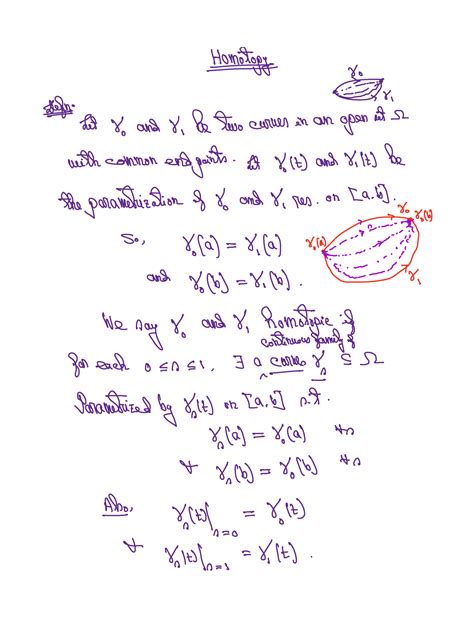 Homotopy
γ₀
γ₁
Defn: Let γ₀ and γ₁ be two curves in an open set Ω
with common end points. Let γ₀(t) and γ₁(t) be
the parametrization of γ₀ and γ₁ res. on [a,b].
So, γ₀(a) = γ₁(a)
and γ₀(b) = γ₁(b).
γ₀(a) γ₀ γ₀(b)
γ₁
We say γ₀ and γ₁ homotopic if
continuous family of
for each 0≤s≤1, ∃ a curve γₛ ⊆ Ω
Parametrized by γₛ(t) on [a,b] s.t.
γₛ(a) = γ₀(a) ∀s
& γₛ(b) = γ₀(b) ∀s
Also, γₛ(t)|ₛ₌₀ = γ₀(t)
& γₛ(t)|ₛ₌₁ = γ₁(t).